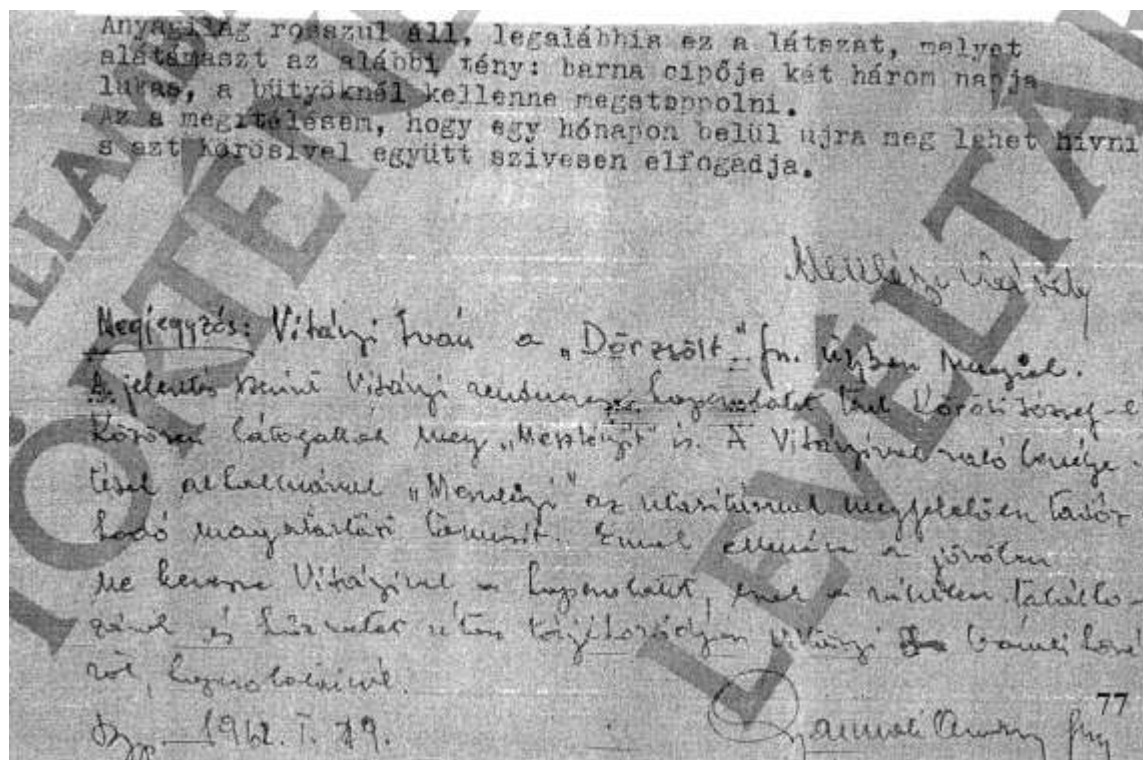 Anyagilag rosszul áll, legalábbis ez a látszat, melyet
alátámaszt az alábbi tény: barna cipője két három napja
lukas, a bütyöknél kellene megstoppolni.
Az a megitélésem, hogy egy hónapon belül ujra meg lehet hívni
s azt Körösivel együtt szivesen elfogadja.
Megjegyzés: Vitányi Iván a „Dörzsölt" fn. ügyben szerepel.
A jelentés szerint Vitányi rendszeres kapcsolatot tart Körösi József-el
Közösen látogatták meg „Mészáyit" is. A Vitányival való beszélge-
tések alkalmával az utasításnak megfelelően tartóz-
kodó magatartást tanusít. Ennek ellenére a jövőben
ne keresse Vitányival a kapcsolatot, csak a véletlen találko-
zásnál és tájékozódjon Vitányi baráti köré-
ről, kapcsolatairól.
Bp. 1962. I. 19.
77
ÁLLAMB
TÖRTÉNE
LEVÉLTÁR